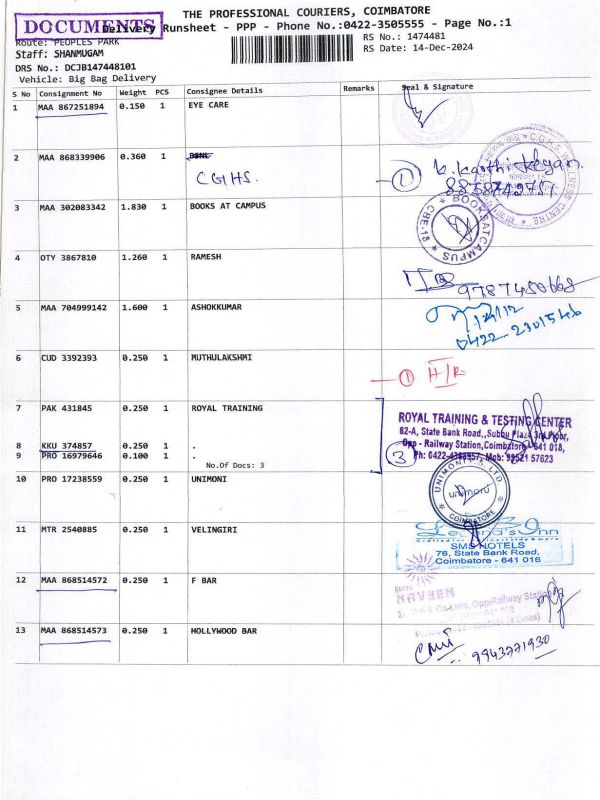 THE PROFESSIONAL COURIERS, COIMBATORE
DOCUMENTS
Delivery Runsheet - PPP - Phone No.:0422-3505555 - Page No.:1
Route: PEOPLES PARK
RS No.: 1474481
Staff: SHANMUGAM
RS Date: 14-Dec-2024
DRS No.: DCJB147448101
Vehicle: Big Bag Delivery
S No Consignment No Weight PCS Consignee Details Remarks Seal & Signature
1 MAA 867251894 0.150 1 EYE CARE
2 MAA 868339906 0.360 1 BSNL
CGHS.
1 K. Karthikeyan
C.G.H.S. WELLNESS CENTRE
3 MAA 302083342 1.830 1 BOOKS AT CAMPUS
BOOKS AT CAMPUS CBE-18
4 OTY 3867810 1.260 1 RAMESH
9787450668
5 MAA 704999142 1.600 1 ASHOKKUMAR
14/12
0422-2301546
6 CUD 3392393 0.250 1 MUTHULAKSHMI
1 H/R
7 PAK 431845 0.250 1 ROYAL TRAINING
ROYAL TRAINING & TESTING CENTER
62-A, State Bank Road, Subbu Plaza 3rd Floor,
Opp - Railway Station, Coimbatore - 641 018,
8 KKU 374857 0.250 1 .
9 PRO 16979646 0.100 1 .
3 Ph: 0422-4388957, Mob: 99521 57623
No.Of Docs: 3
10 PRO 17238559 0.250 1 UNIMONI
UNIMONI FS. LTD. unimoni COIMBATORE
11 MTR 2540885 0.250 1 VELINGIRI
SMS HOTELS
76, State Bank Road,
Coimbatore - 641 016
12 MAA 868514572 0.250 1 F BAR
HOTEL
NAVEEN
Opp.Railway Station
13 MAA 868514573 0.250 1 HOLLYWOOD BAR
9943771930